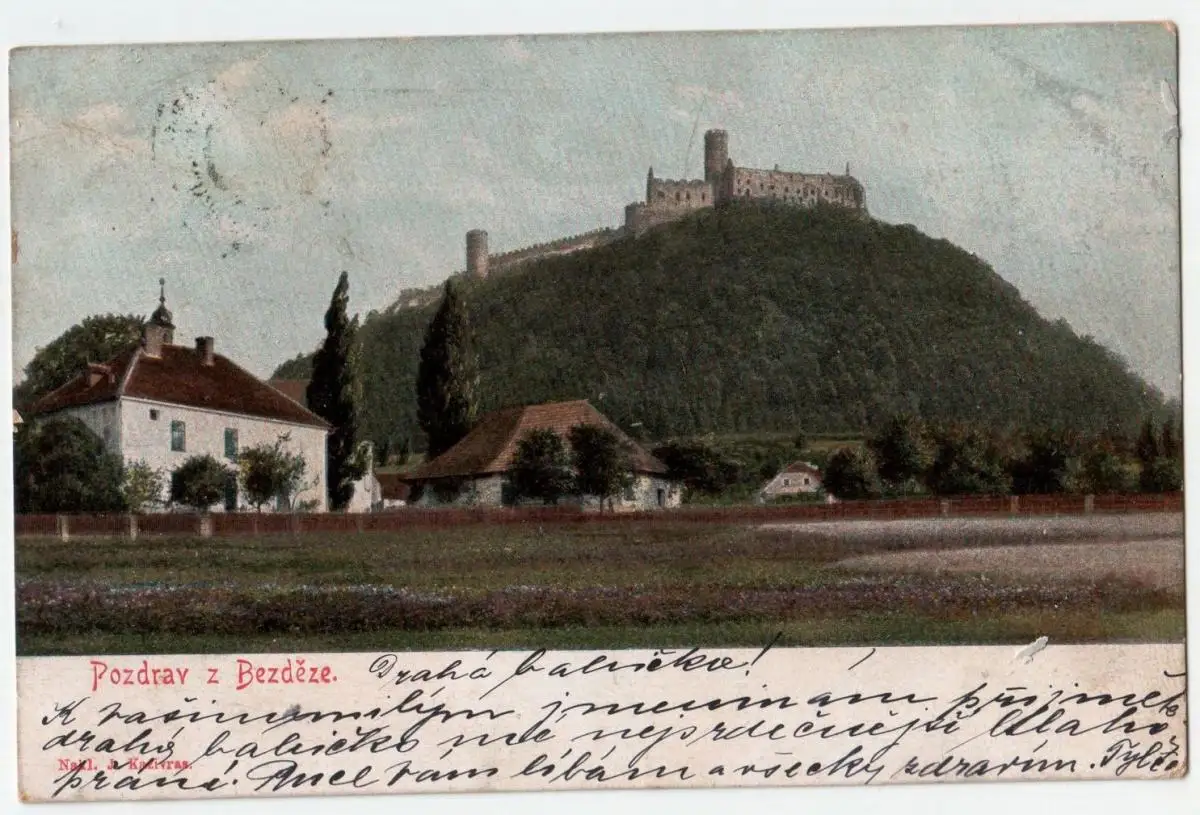 Pozdrav z Bezděze.
Drahá babičko!
K vašin milým jmeninam přijměte
drahá babičko mé nejsrdečnější blaho
přání. Ruce vám líbám a všecky zdravím.
Nakl. J. Kažívras.